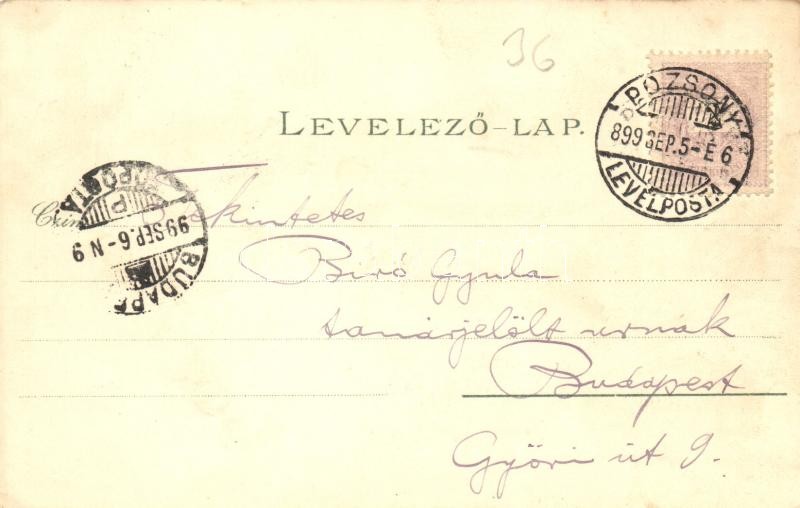 36
LEVELEZŐ-LAP.
POZSONY
899 SEP. 5 - É 6
LEVÉLPOSTA
99 SEP. 6 - N 9
BUDAP
Czim
Tekintetes
Biró Gyula
tanárjelölt urnak
Budapest
Győri út 9.